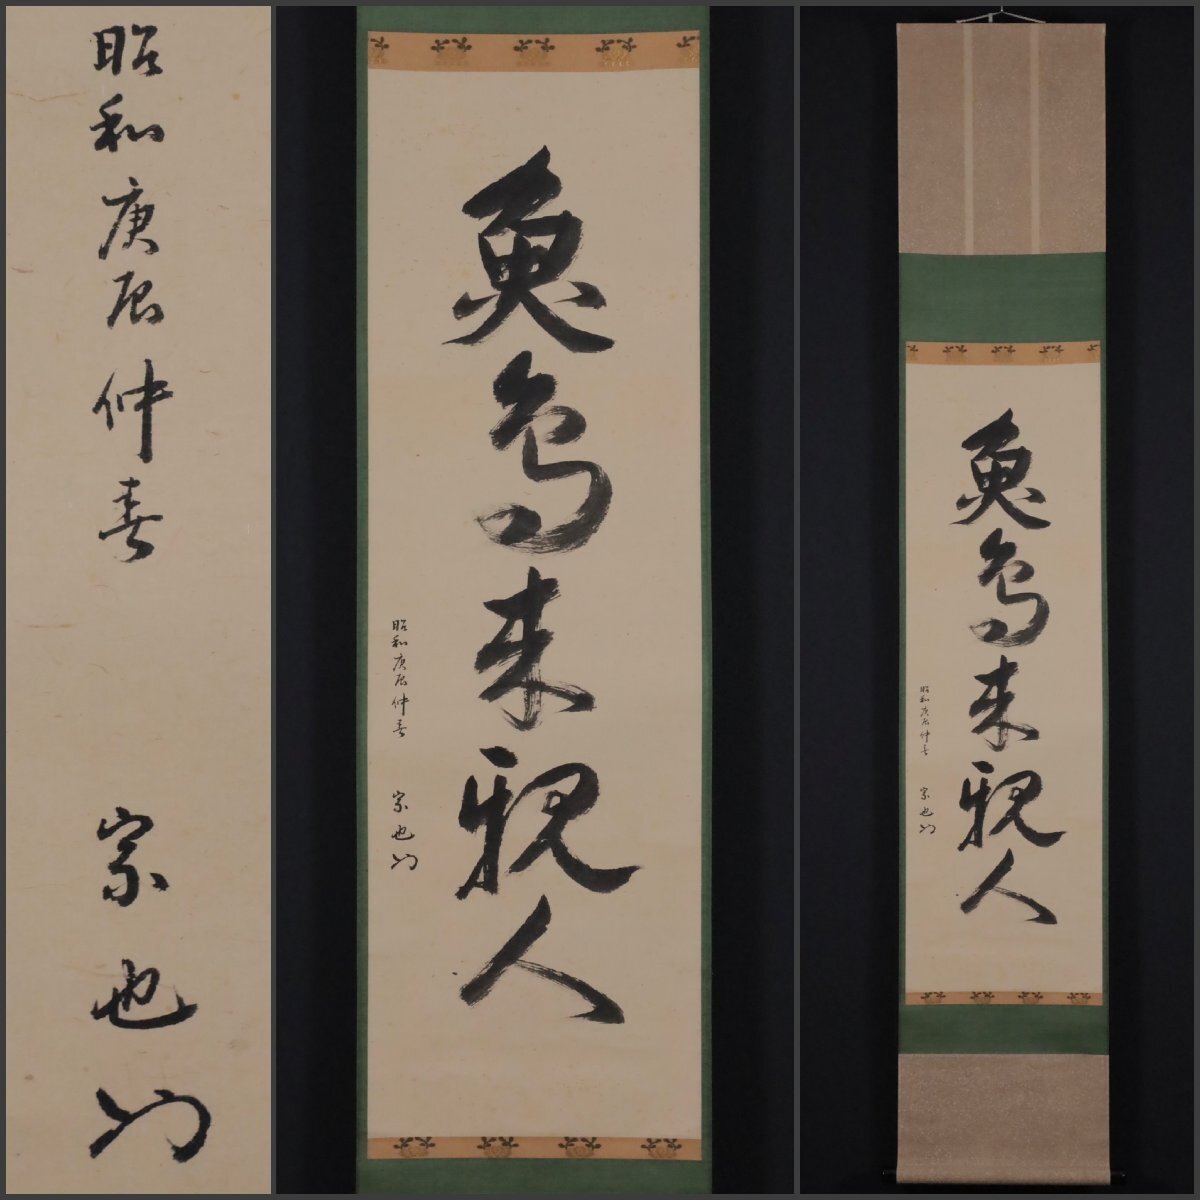 昭和庚辰仲春 宗也
魚鳥来親人
昭和庚辰仲春 宗也
魚鳥来親人
昭和庚辰仲春 宗也